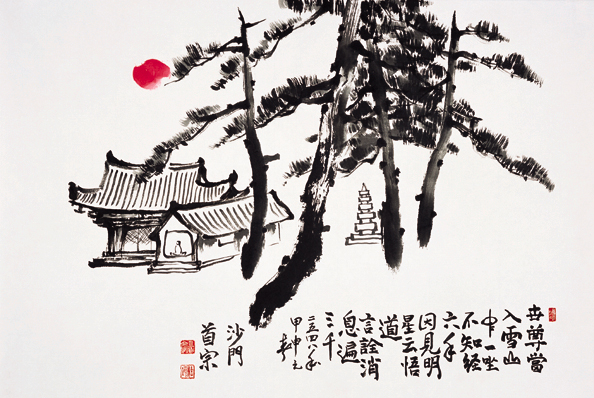 世尊當
入雪山
中一坐
不知經
六年
因見明
星云悟
道
言詮消
息遍
三千
二五四八年
甲申元
春
沙門
首宗